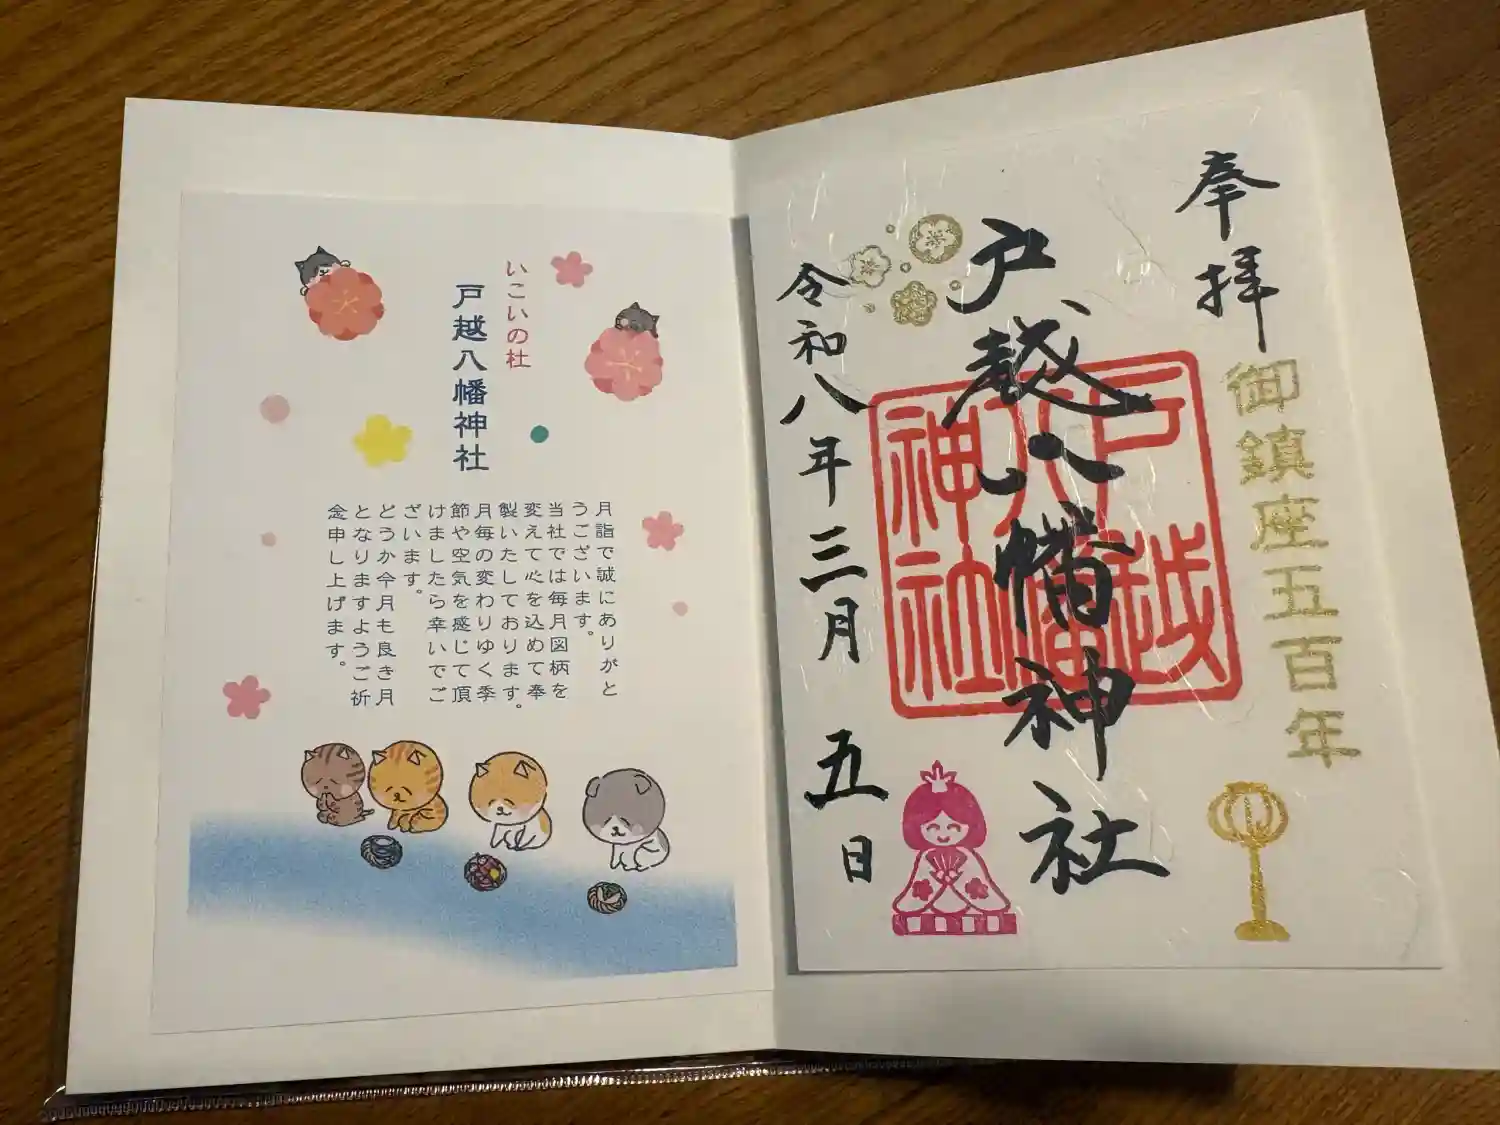 奉拝
御鎮座五百年
戸越八幡神社
戸越
八幡
神社
令和八年三月五日
いこいの杜
戸越八幡神社
月詣で誠にありがと
うございます。
当社では毎月図柄を
変えて心を込めて奉
製いたしております。
月毎の変わりゆく季
節や空気を感じて頂
けましたら幸いでご
ざいます。
どうか今月も良き月
となりますようご祈
念申し上げます。